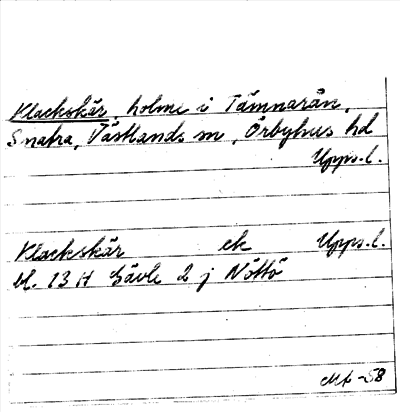 Klackskär, holme i Tämnarån,
Snatra, Västlands sn, Örbyhus hd
Upps. l.
Klackskär ek Upps. l.
bl. 13 H Gävle 2 j Nöttö
-58